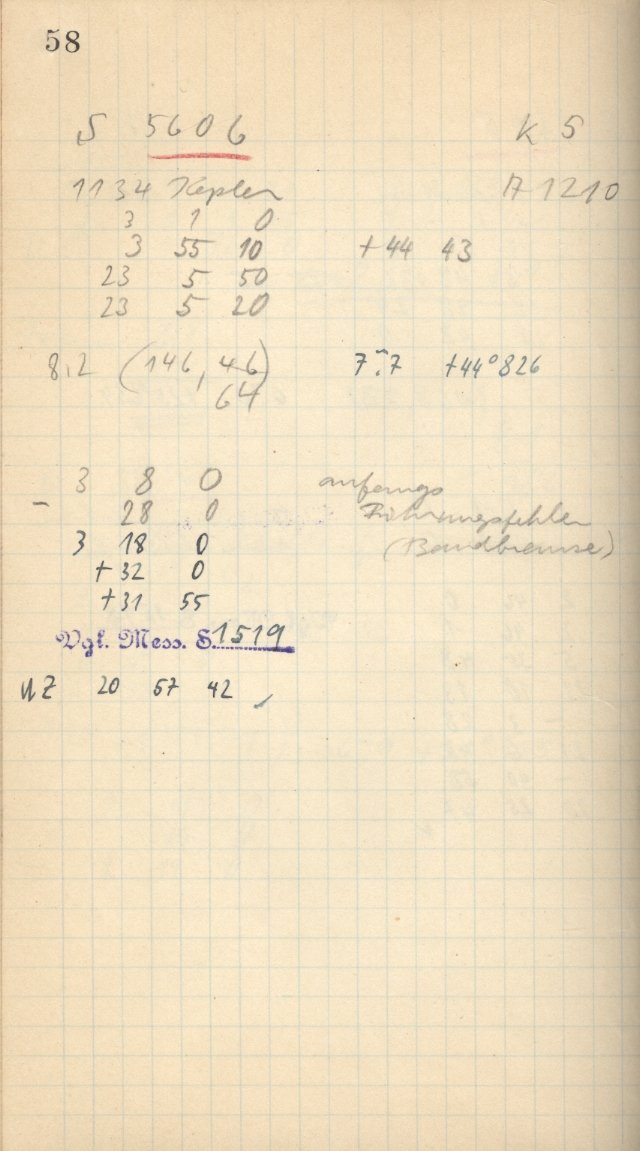 58
S 5606 K 5
1134 Kepler A 1210
3 1 0
3 55 10 +44 43
23 5 50
23 5 20
8,2 (146, 46) 7m,7 +44°826
64
3 8 0 anfangs
- 28 0 Führungsfehler
3 18 0 (Bandbremse)
+32 0
+31 55
Vgl. Mess. S. 1519
UZ 20 57 42